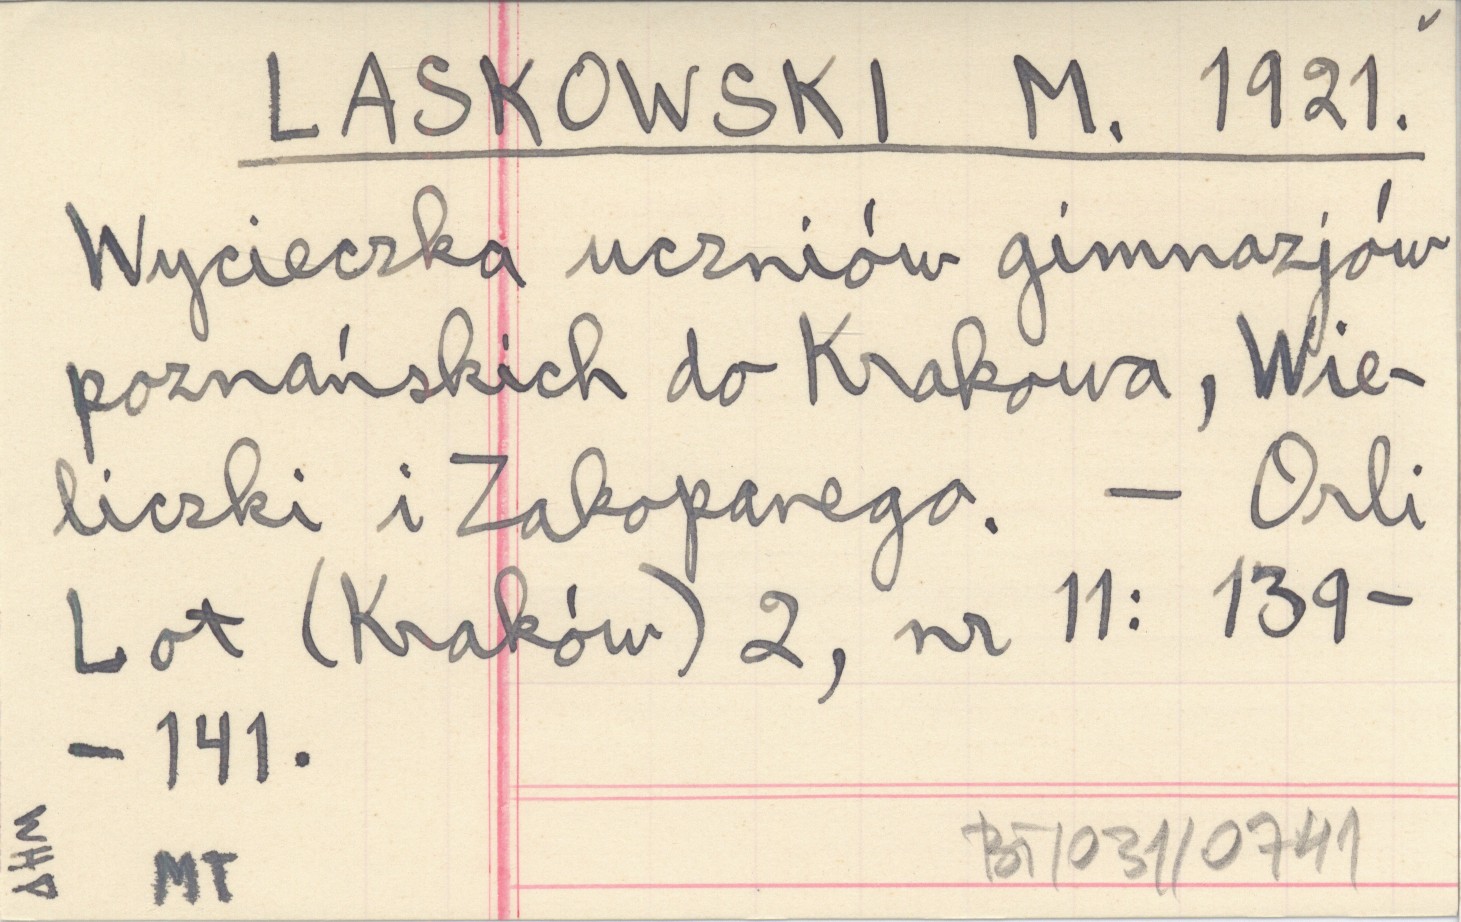 LASKOWSKI M. 1921.
Wycieczka uczniów gimnazjów
poznańskich do Krakowa, Wie-
liczki i Zakopanego. — Orli
Lot (Kraków) 2, nr 11: 139-
- 141.
WHA
MT
BT/031/0741